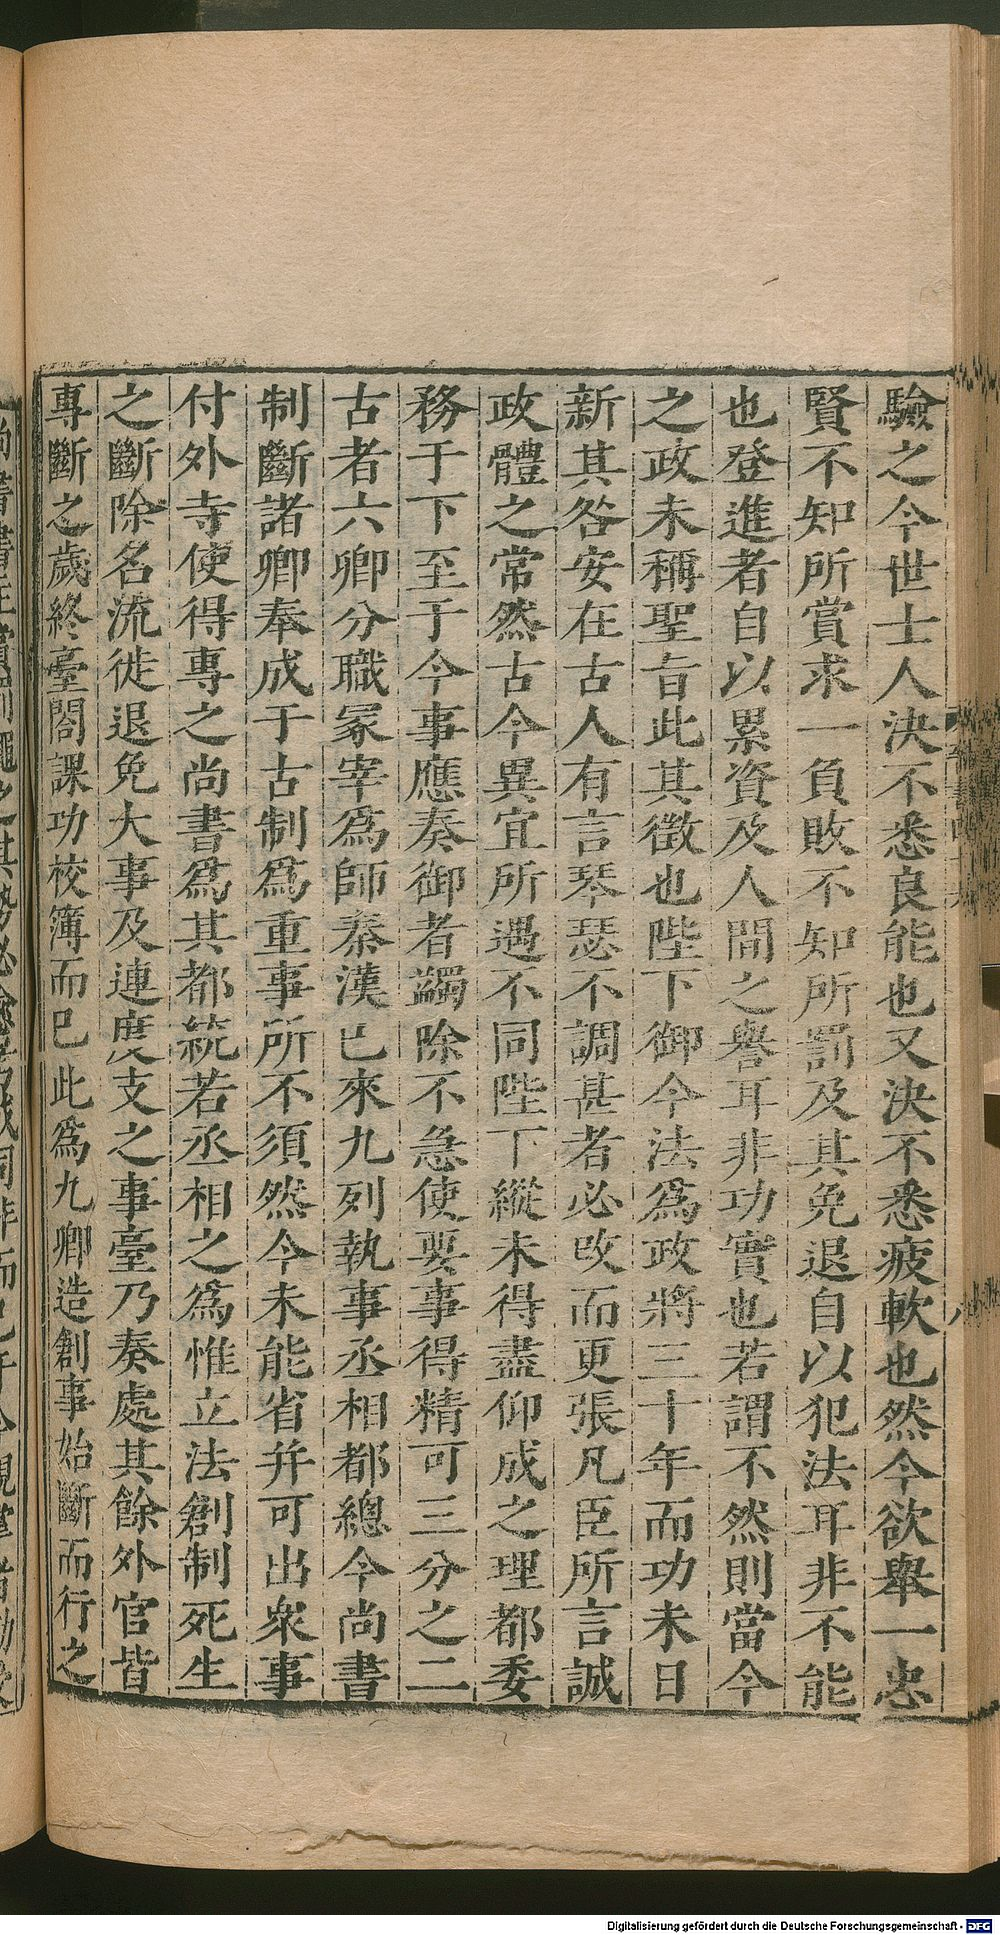 驗之今世士人決不悉良能也又決不悉疲軟也然今欲舉一忠
賢不知所賞求一負敗不知所罰及其免退自以犯法耳非不能
也登進者自以累資及人間之譽耳非功實也若謂不然則當今
之政未稱聖旨此其徵也陛下御今法爲政將三十年而功未日
新其咎安在古人有言琴瑟不調甚者必改而更張凡臣所言誠
政體之常然古今異宜所遇不同陛下縱未得盡仰成之理都委
務于下至于今事應奏御者蠲除不急使要事得精可三分之二
古者六卿分職冢宰爲師秦漢已來九列執事丞相都總今尚書
制斷諸卿奉成于古制爲重事所不須然今未能省并可出衆事
付外寺使得專之尚書爲其都統若丞相之爲惟立法創制死生
之斷除名流徙退免大事及連度支之事臺乃奏處其餘外官皆
專斷之歲終臺閣課功校簿而已此爲九卿造創事始斷而行之
Digitalisierung gefördert durch die Deutsche Forschungsgemeinschaft - DFG